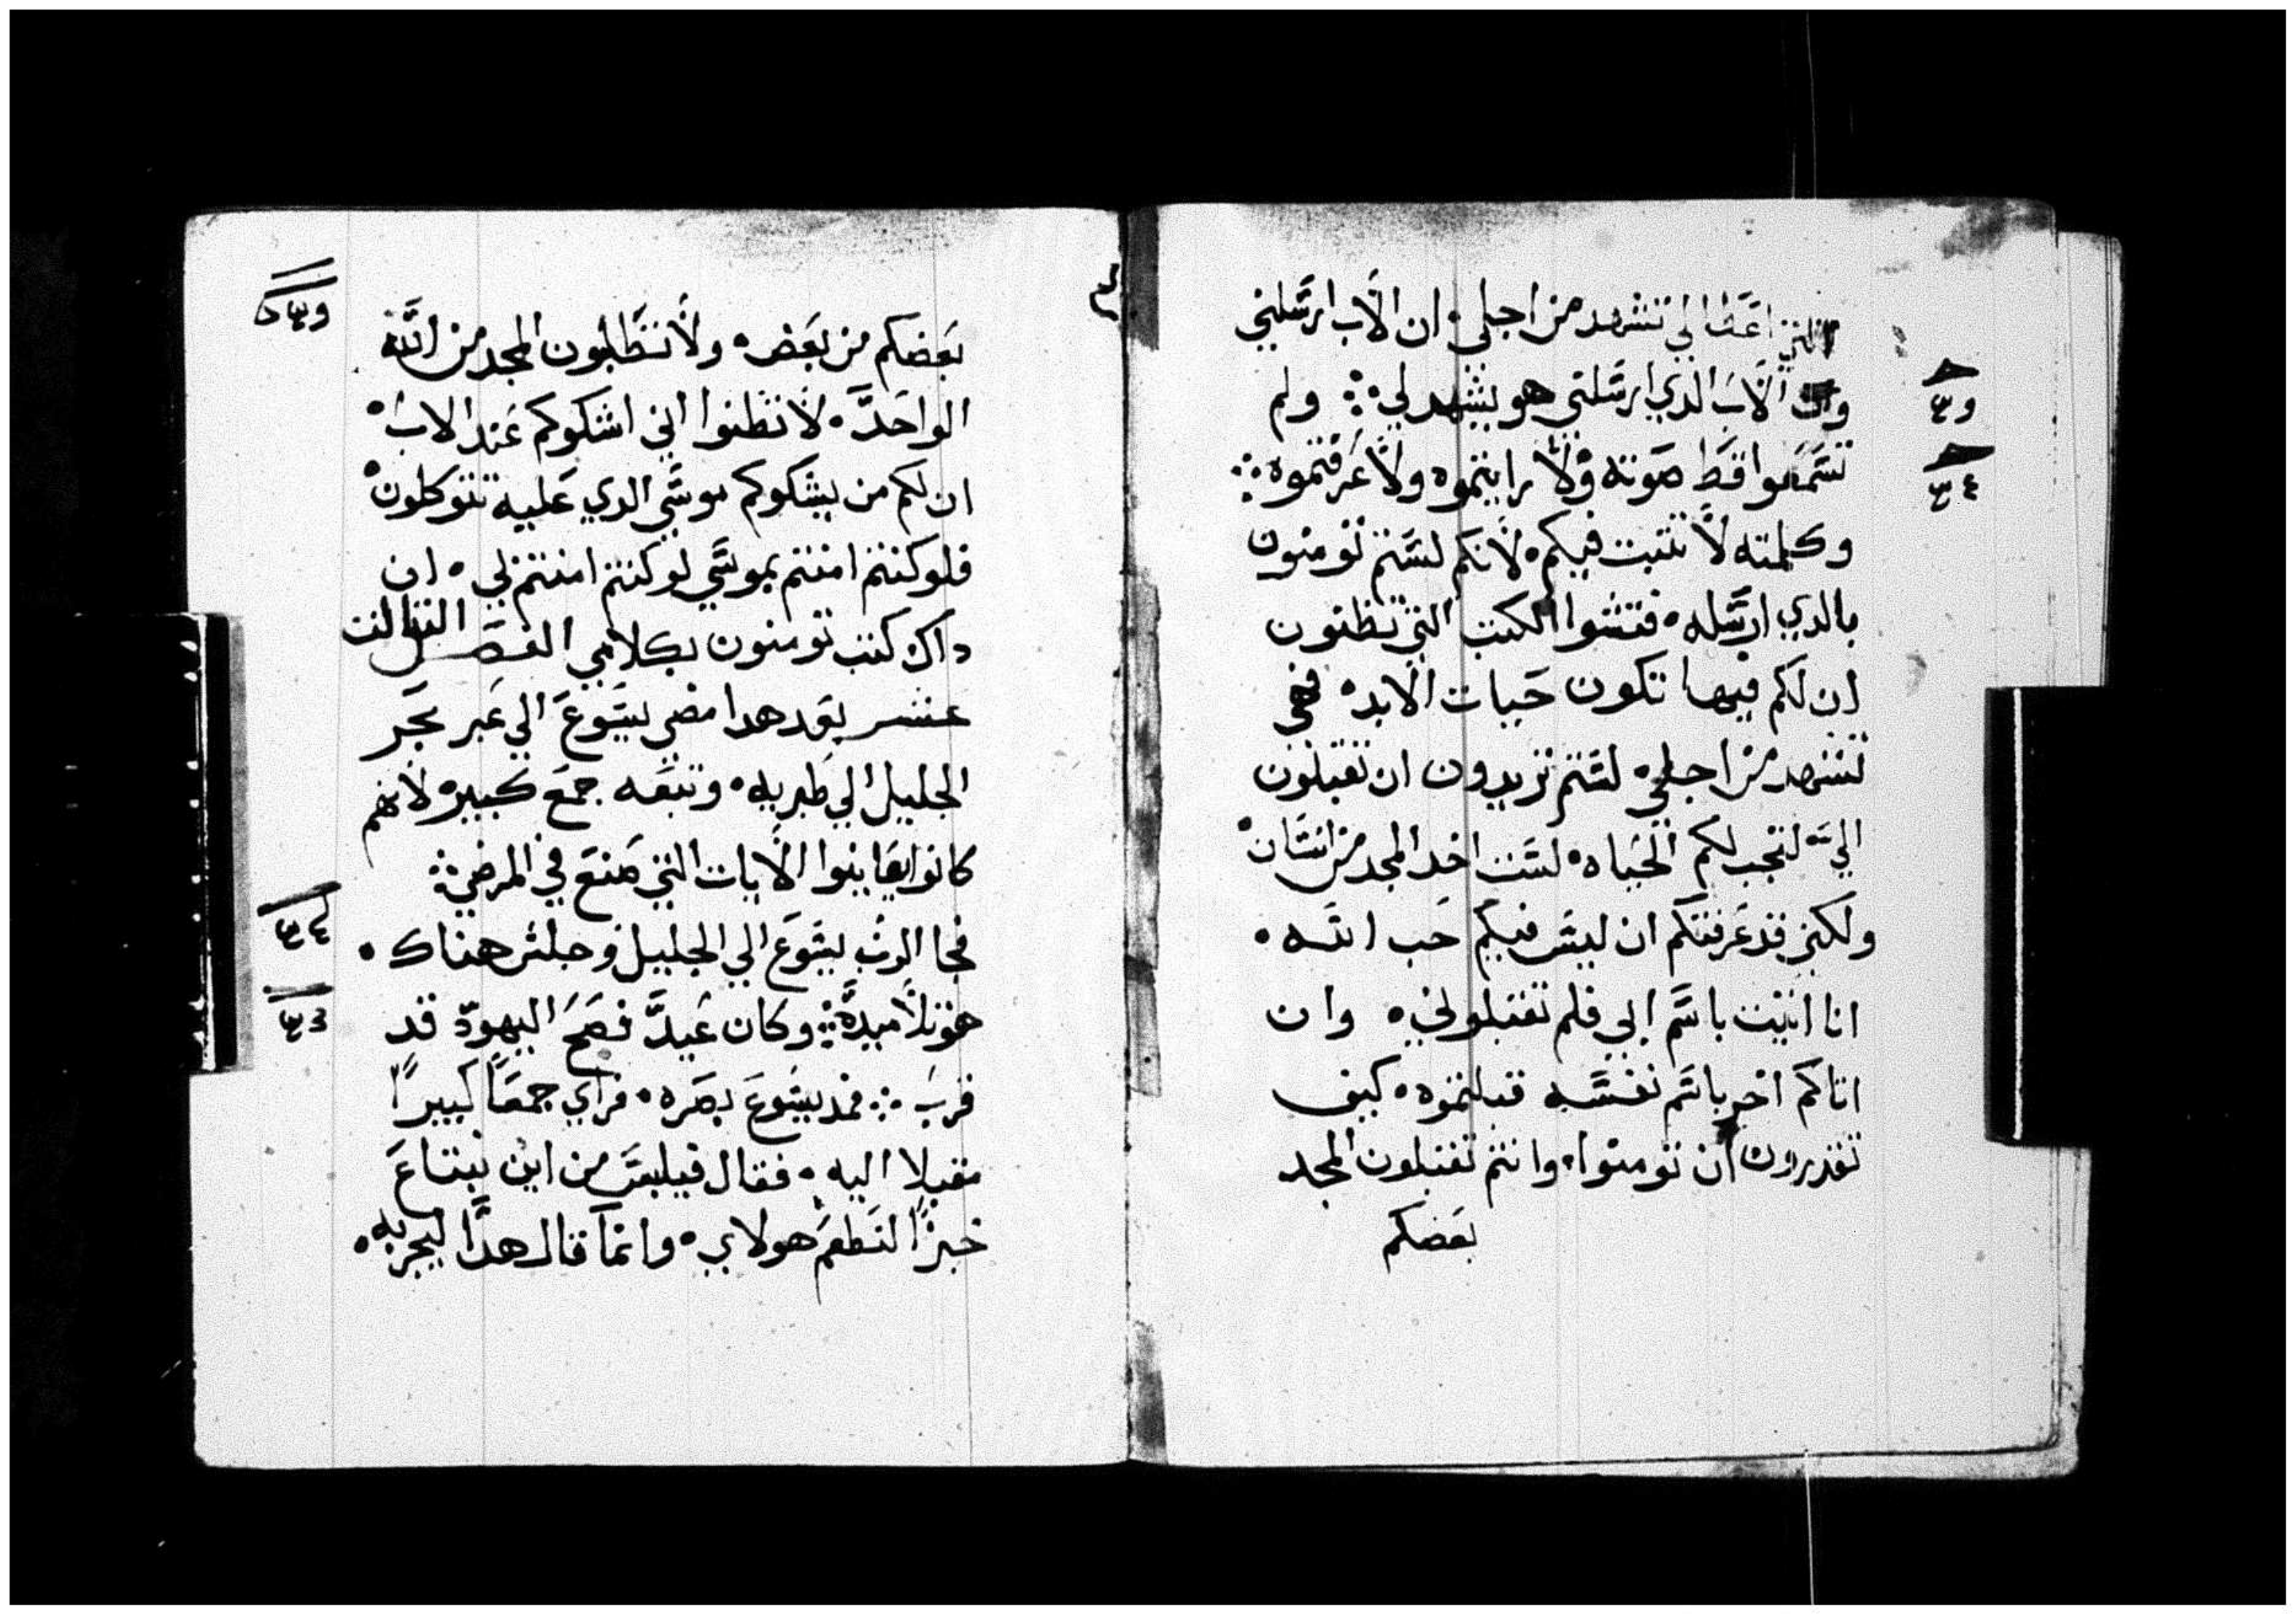 التي اعطالي تشهد من اجلي ان الاب ارسلني
وان الاب الدي ارسلني هو يشهد لي ۞ ولم
تسمعوا قط صوته ولا رايتموه ولا عرفتموه ۞
وكلمته لا تتبت فيكم لانكم لستم تومنون
بالدي ارسله فتشوا الكتب التي تظنون
ان لكم فيها تكون حيات الابد فهي
تشهد من اجلي لستم تريدون ان تقبلون
الي لتجب لكم الحياه لست اخد المجد من انسان
ولكني قد عرفتكم ان ليس فيكم حب الله
انا اتيت باسم ابي فلم تقبلوني وان
اتاكم اخر باسم نفسه قبلتموه كيف
تقدرون ان تومنوا وانتم تقبلون المجد
بعضكم
بعضكم من بعض ولا تطلبون المجد من الله
الواحد لا تظنوا اني اشكوكم عند الاب
ان لكم من يشكوكم موسي الدي عليه تتوكلون
فلو كنتم امنتم بموسي لو كنتم امنتم لي ان
داك كتب تومنون بكلامي الفصل التالت
عشر بعد هدا مضي يسوع الي عبر بحر
الجليل الي طبريه وتبعه جمع كبير لانهم
كانوا يعاينوا الايات التي صنع في المرضي ۞
فجا الرب يسوع الي الجليل وجلس هناك
هو وتلاميده ۞ وكان عيد فصح اليهود قد
قرب ۞ فمد يسوع بصره فراي جمعا كبيرا
مقبلا اليه فقال فيلبس من اين نبتاع
خبزا لنطعم هولاي وانما قال هدا ليجربه